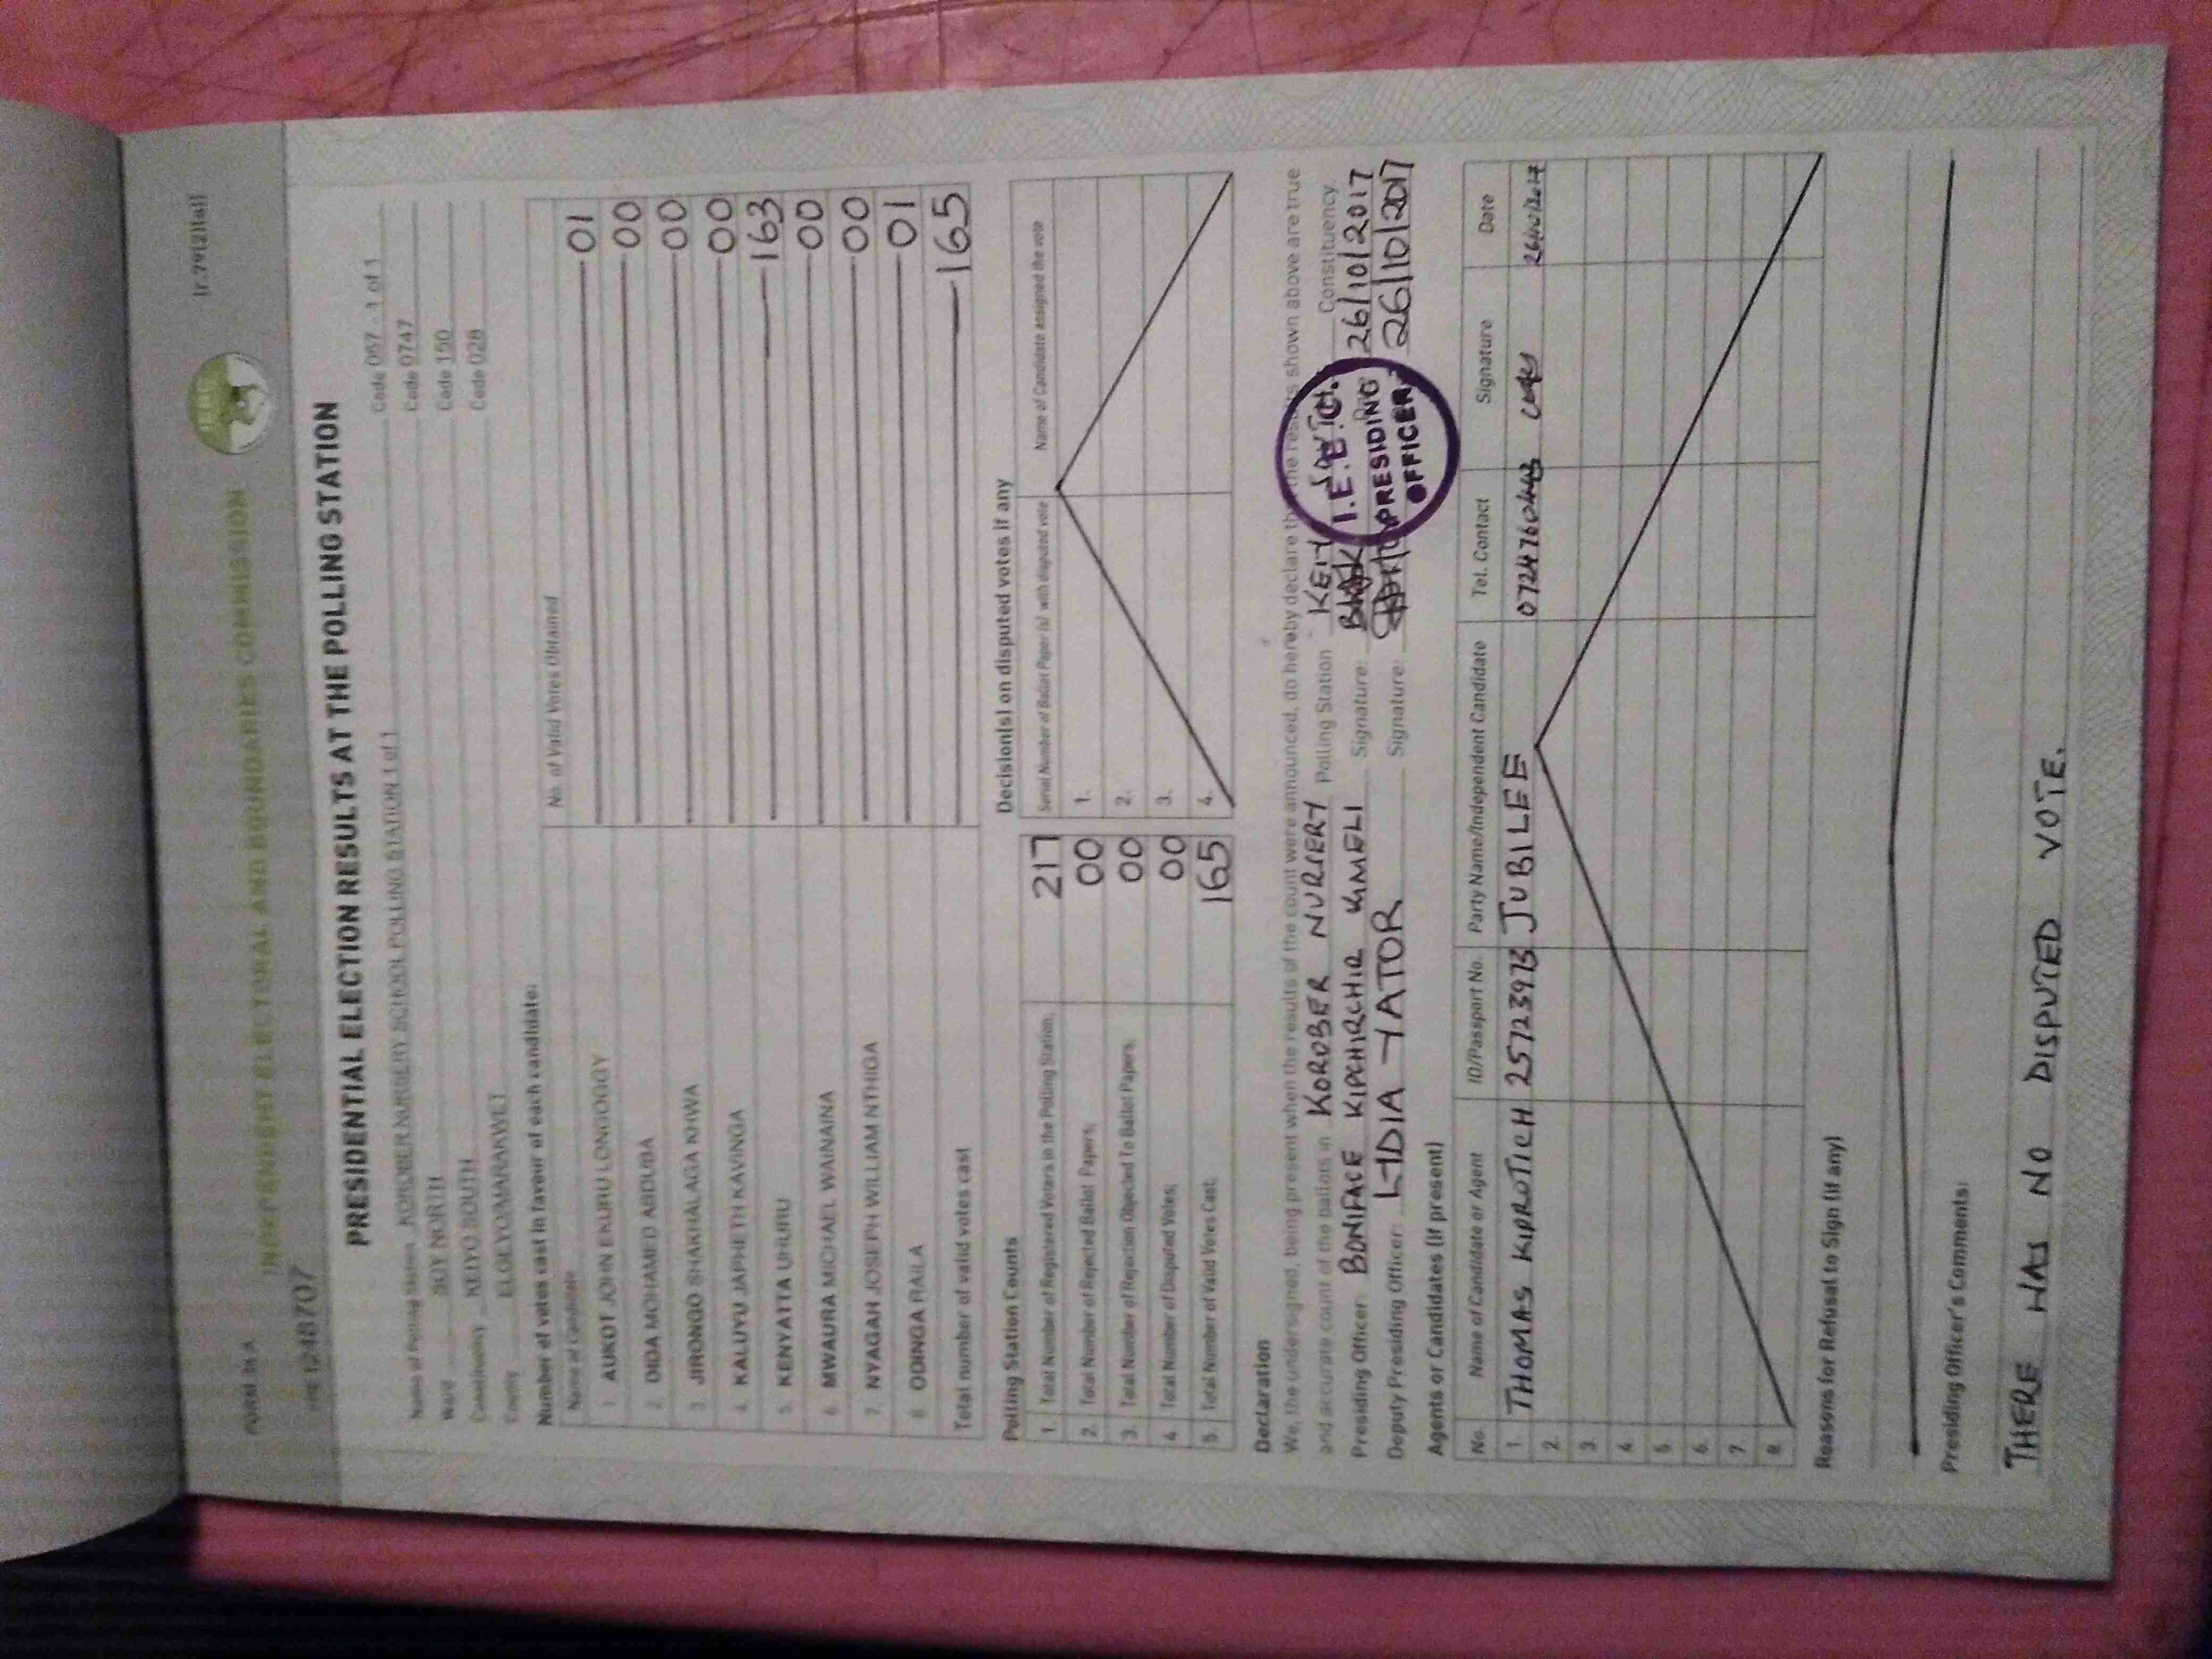 FORM 34 A
[r.79(2)(a)]
INDEPENDENT ELECTORAL AND BOUNDARIES COMMISSION
1248707
PRESIDENTIAL ELECTION RESULTS AT THE POLLING STATION
Name of Polling Station KOROBER NURSERY SCHOOL POLLING STATION 1 of 1 Code 067 1 of 1
Ward SOY NORTH Code 0747
Constituency KEIYO SOUTH Code 150
County ELGEYO/MARAKWET Code 028
Number of votes cast in favour of each candidate:
Name of Candidate No. of Valid Votes Obtained
1. AUKOT JOHN EKURU LONGOGGY 01
2. DIDA MOHAMED ABDUBA 00
3. JIRONGO SHAKHALAGA KHWA 00
4. KALUYU JAPHETH KAVINGA 00
5. KENYATTA UHURU 163
6. MWAURA MICHAEL WAINAINA 00
7. NYAGAH JOSEPH WILLIAM NTHIGA 00
8. ODINGA RAILA 01
Total number of valid votes cast 165
Polling Station Counts
1. Total Number of Registered Voters in the Polling Station; 217
2. Total Number of Rejected Ballot Papers; 00
3. Total Number of Rejection Objected To Ballot Papers; 00
4. Total Number of Disputed Votes; 00
5. Total Number of Valid Votes Cast; 165
Decision(s) on disputed votes if any
Serial Number of Ballot Paper (s) with disputed vote Name of Candidate assigned the vote
1.
2.
3.
4.
Declaration
We, the undersigned, being present when the results of the count were announced, do hereby declare that the results shown above are true
and accurate count of the ballots in KOROBER NURSERY Polling Station KEIYO SOUTH Constituency
Presiding Officer: BONIFACE KIPCHIRCHIR KIMELI Signature: 26/10/2017
Deputy Presiding Officer: LYDIA YATOR Signature: 26/10/2017
I.E.B.C.
PRESIDING
OFFICER
Agents or Candidates (if present)
No. Name of Candidate or Agent ID/Passport No. Party Name/Independent Candidate Tel. Contact Signature Date
1. THOMAS KIPROTICH 25723973 JUBILEE 26/10/2017
2.
3.
4.
5.
6.
7.
8.
Reasons for Refusal to Sign (if any)
Presiding Officer's Comments:
THERE HAS NO DISPUTED VOTE.